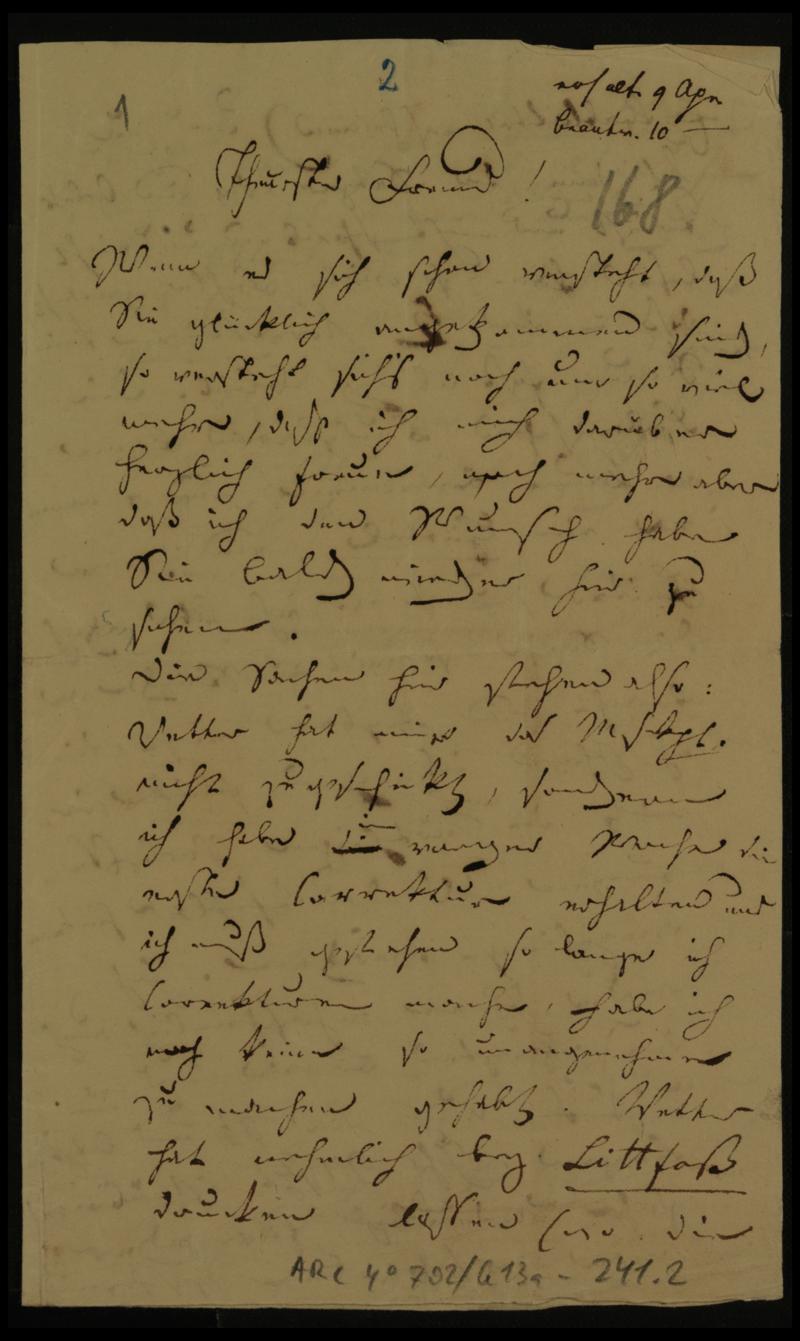 2
1
erhalt. 9 Apr
beantw. 10 —
Theurster Freund!
168
Wenn es sich schon versteht, daß
Sie glücklich angekommen sind,
so versteht sich's noch um so viel
mehr, daß ich mich darüber
herzlich freue, noch mehr aber
daß ich den Wunsch habe
Sie bald wieder hier zu
sehen.
Die Sachen hier stehen also:
Vetter hat mir das Mskpt.
nicht zugeschickt, sondern
ich habe in voriger Woche die
erste Correktur erhalten und
ich muß gestehen so lange ich
Correkturen mache, habe ich
noch keine so unangenehme
zu machen gehabt. Vetter
hat nehmlich bey Littfaß
drucken lassen (wo die
ARC 4° 702/G13a - 241.2